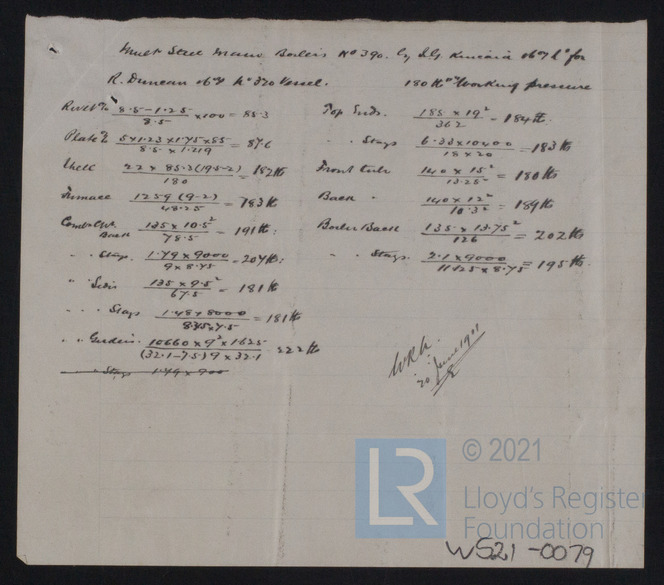 Mult Steel Main Boilers No 390. by J.G. Kincaid & Co Ld for
R. Duncan & Co Ld No 320 Vessel. 180 lbs Working pressure
Rivet % 8.5-1.25 / 8.5 x 100 = 85.3
Plate % 5x1.23x1.75x85 / 8.5 x 1.219 = 87.6
Shell 22 x 85.3(19.5-2) / 180 = 182 lbs
Furnace 1259 (9-2) / 48.25 = 183 lbs
Comb Chr Back 135 x 10.5² / 78.5 = 191 lbs
" " Stays 1.79 x 9000 / 9 x 8.75 = 204 lbs
" " Sides 135 x 9.5² / 67.5 = 181 lbs
" " " Stays 1.48 x 8000 / 8.75 x 7.5 = 181 lbs
" " Girders 10660 x 9² x 1.625 / (32.1-7.5) 9 x 32.1 = 222 lbs
" Stays 1.79 x 900
Top Ends. 185 x 19² / 362 = 184 lbs
" " Stays 6.33 x 10400 / 18 x 20 = 183 lbs
Front tube 140 x 15² / 13.25² = 180 lbs
Back " 140 x 12² / 10.3² = 189 lbs
Boiler Back 135 x 13.75² / 126 = 202 lbs
" " Stays 2.1 x 9000 / 11.125 x 8.75 = 195 lbs
20 June 1901
LR
© 2021
Lloyd's Register
Foundation
WS21-0079